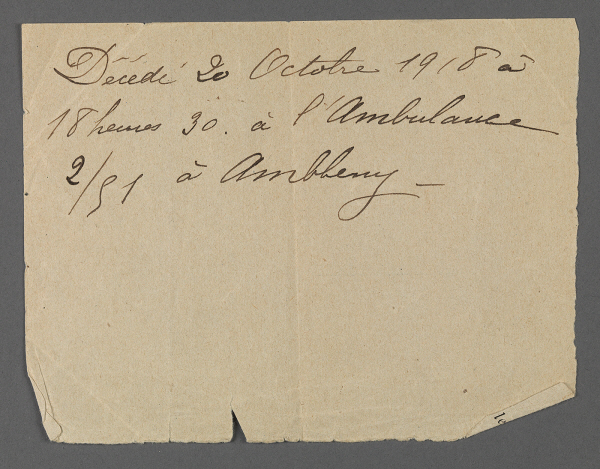 Décédé 20 Octobre 1918 à
18 heures 30. à l'Ambulance
2/51 à Ambleny_